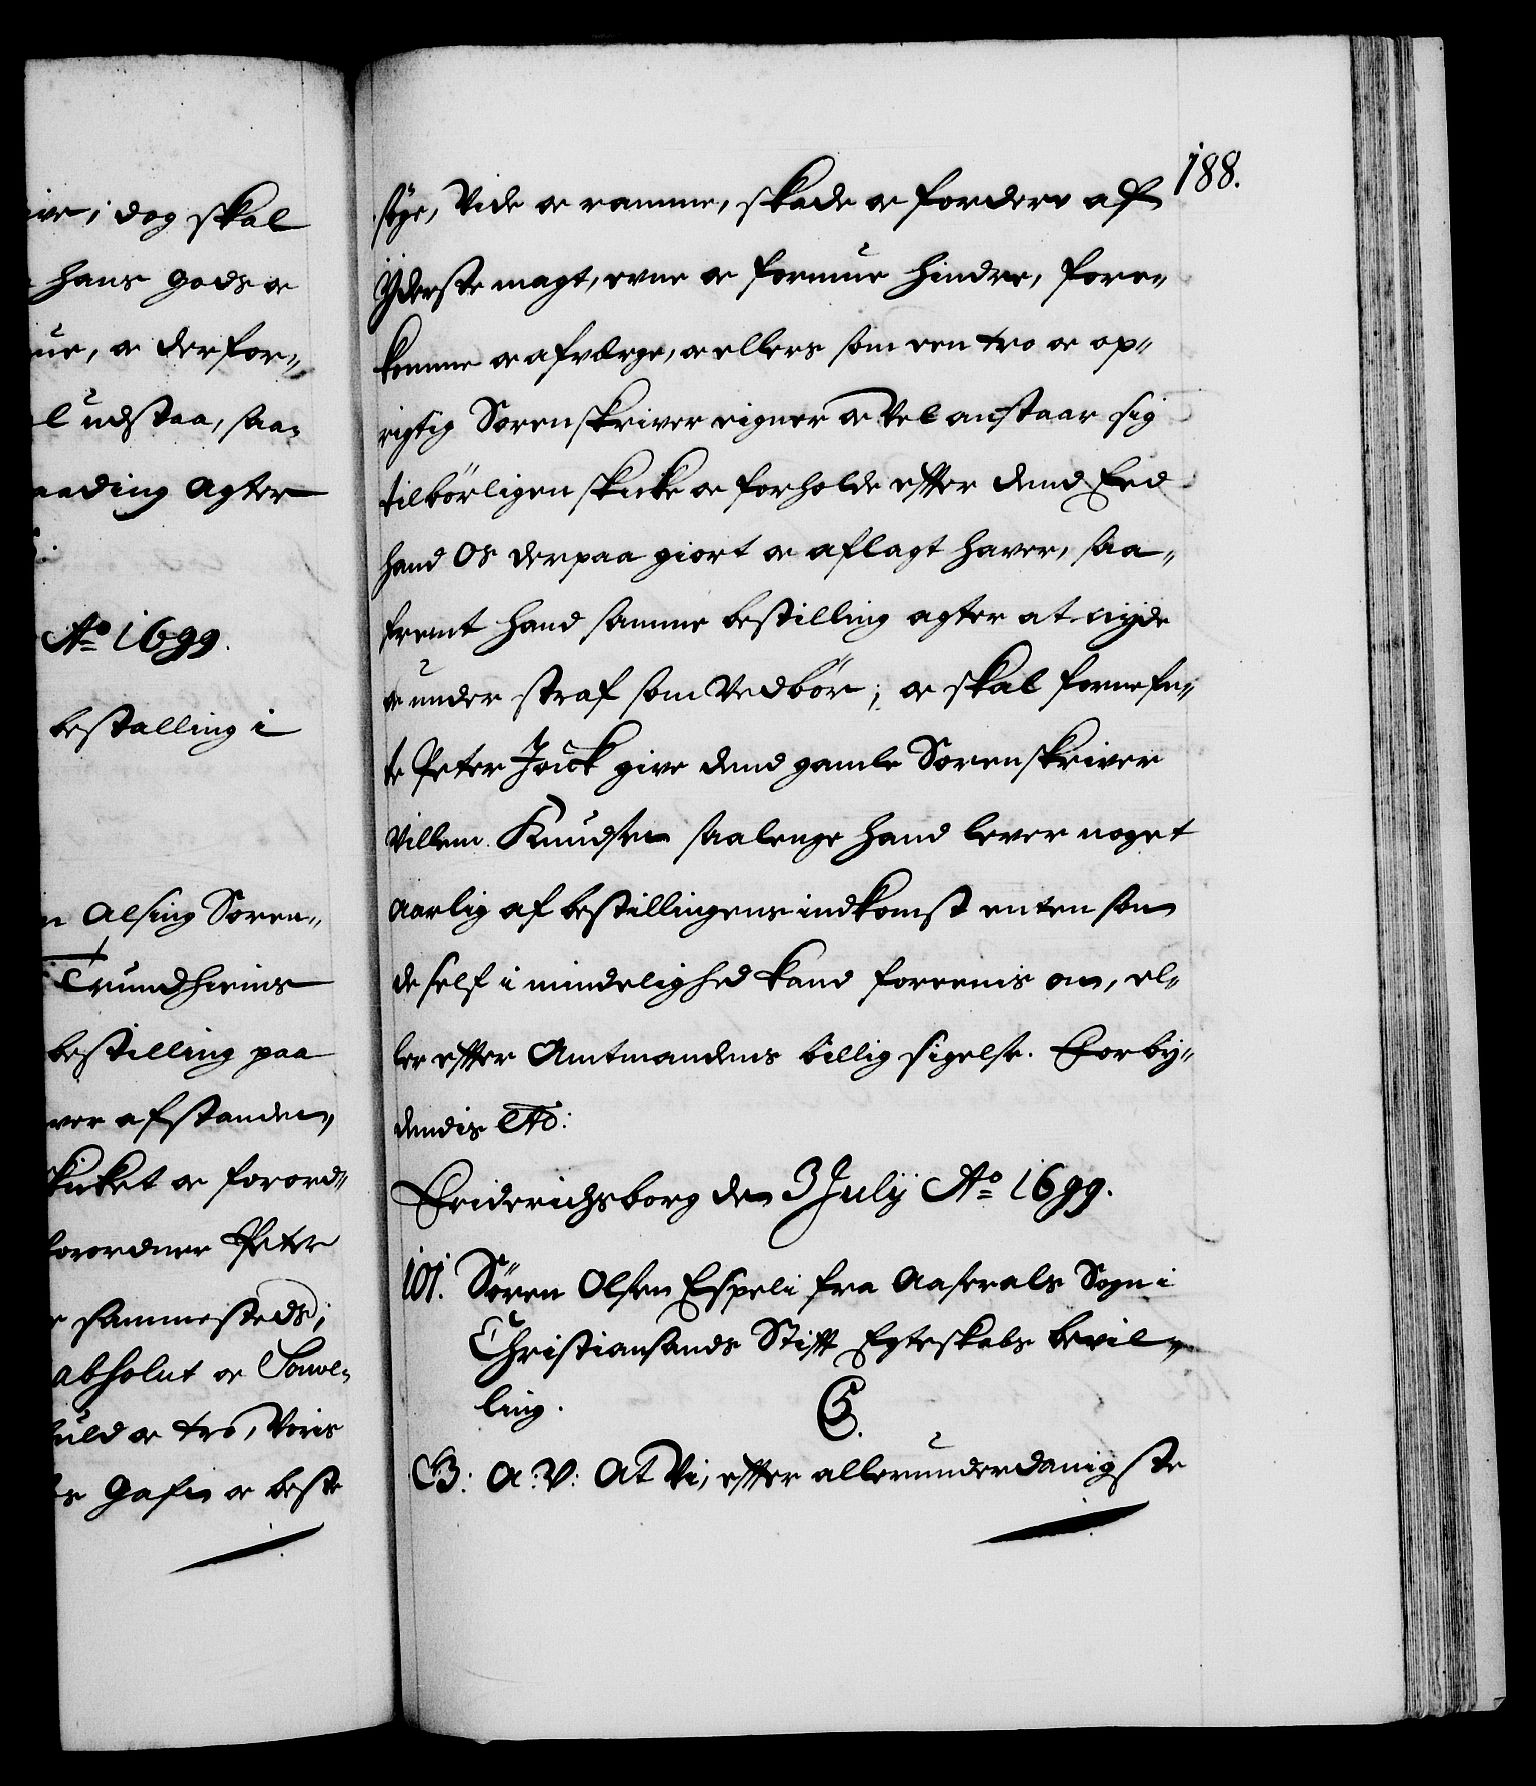 ive, i dog skal
hans gods oc
ue, oc derfor-
l udstaa, saa-
aading agter
Ao 1699.
bestalling i
n Alsing Soren-
Trundhiems
bestilling paa
ver afstanden,
skicket oc forord-
forordner Peter
sammesteds;
absolut oc Souve-
huld oc tro, Voris
gafn oc beste
188.
søge, Vide oc ramme, skade oc fordere af
Yderste magt, evne oc formue hindre, fore-
komme oc afværge, oc ellers som een tro oc op-
rigtig Sorenskriver eigner oc Vel anstaar sig
tilbörligen skicke oc forholde effter dend Eed
hand Os derpaa giort oc aflagt haver, saa-
fremt hand samme bestilling agter at nyde
oc under straf som Vedbör; oc skal fornefn-
te Peter Jäck give dend gamle Sorenskriver
Villem Knudsen saalenge hand lever noget
aarlig af bestillingens indkomst enten som
de self i mindelighed kand foreenis om, el-
ler effter Amtmandens billig sigelse. Forby-
dendis etc:
Friderichsborg den 3 July Ao 1699.
101. Sören Olsen Espeli fra Aaserals Sogn i
Christiansands Stift Egteskabs bevil-
ling.
G.
G: A: V: At Vi, effter allerunderdanigste